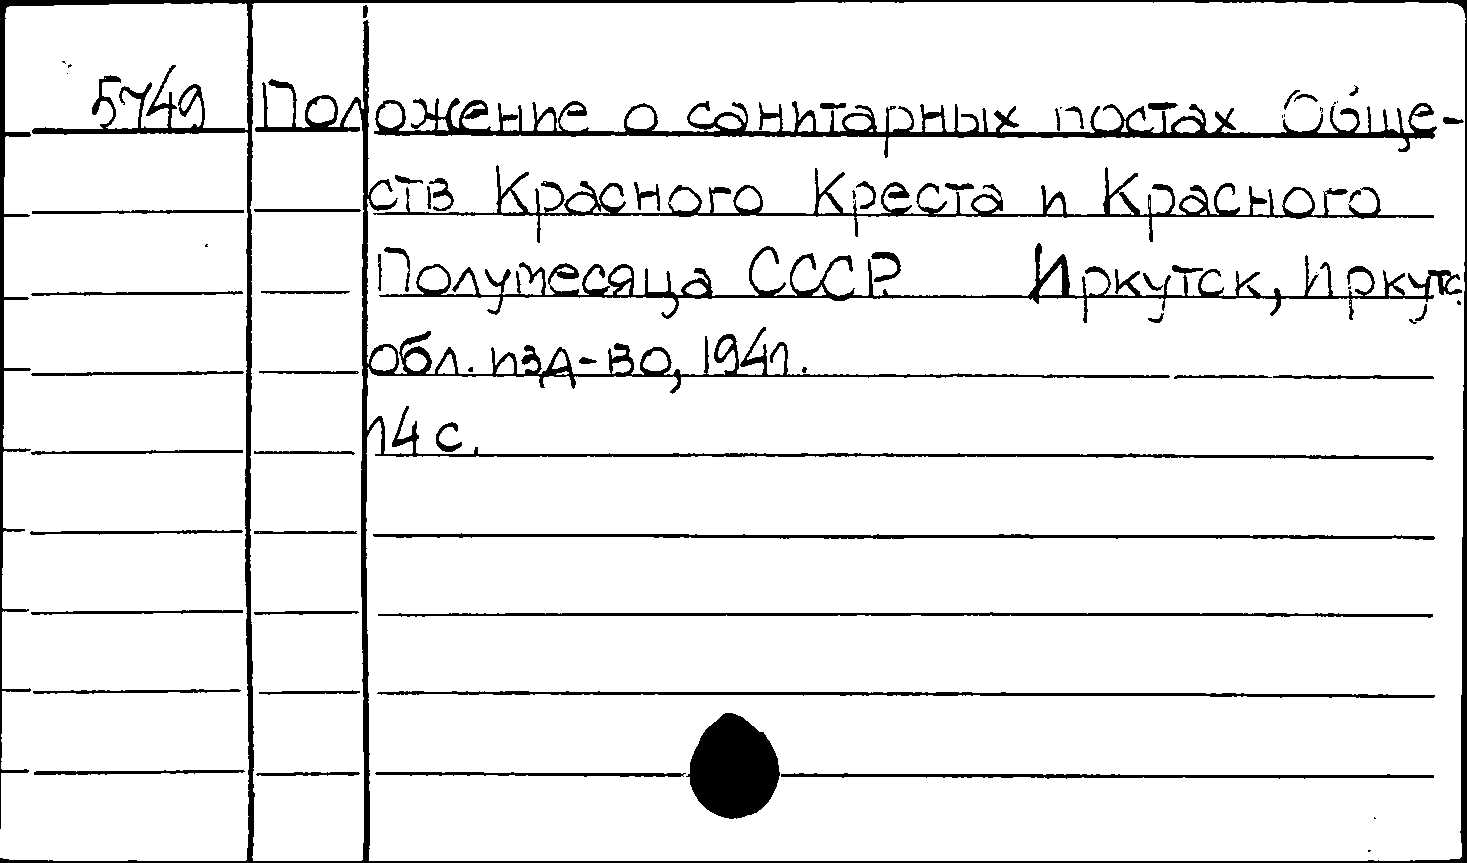 5749 Положение о санитарных постах Обще-
ств Красного Креста и Красного
Полумесяца СССР. Иркутск, Иркутс.
обл. изд-во, 1941.
14 с.